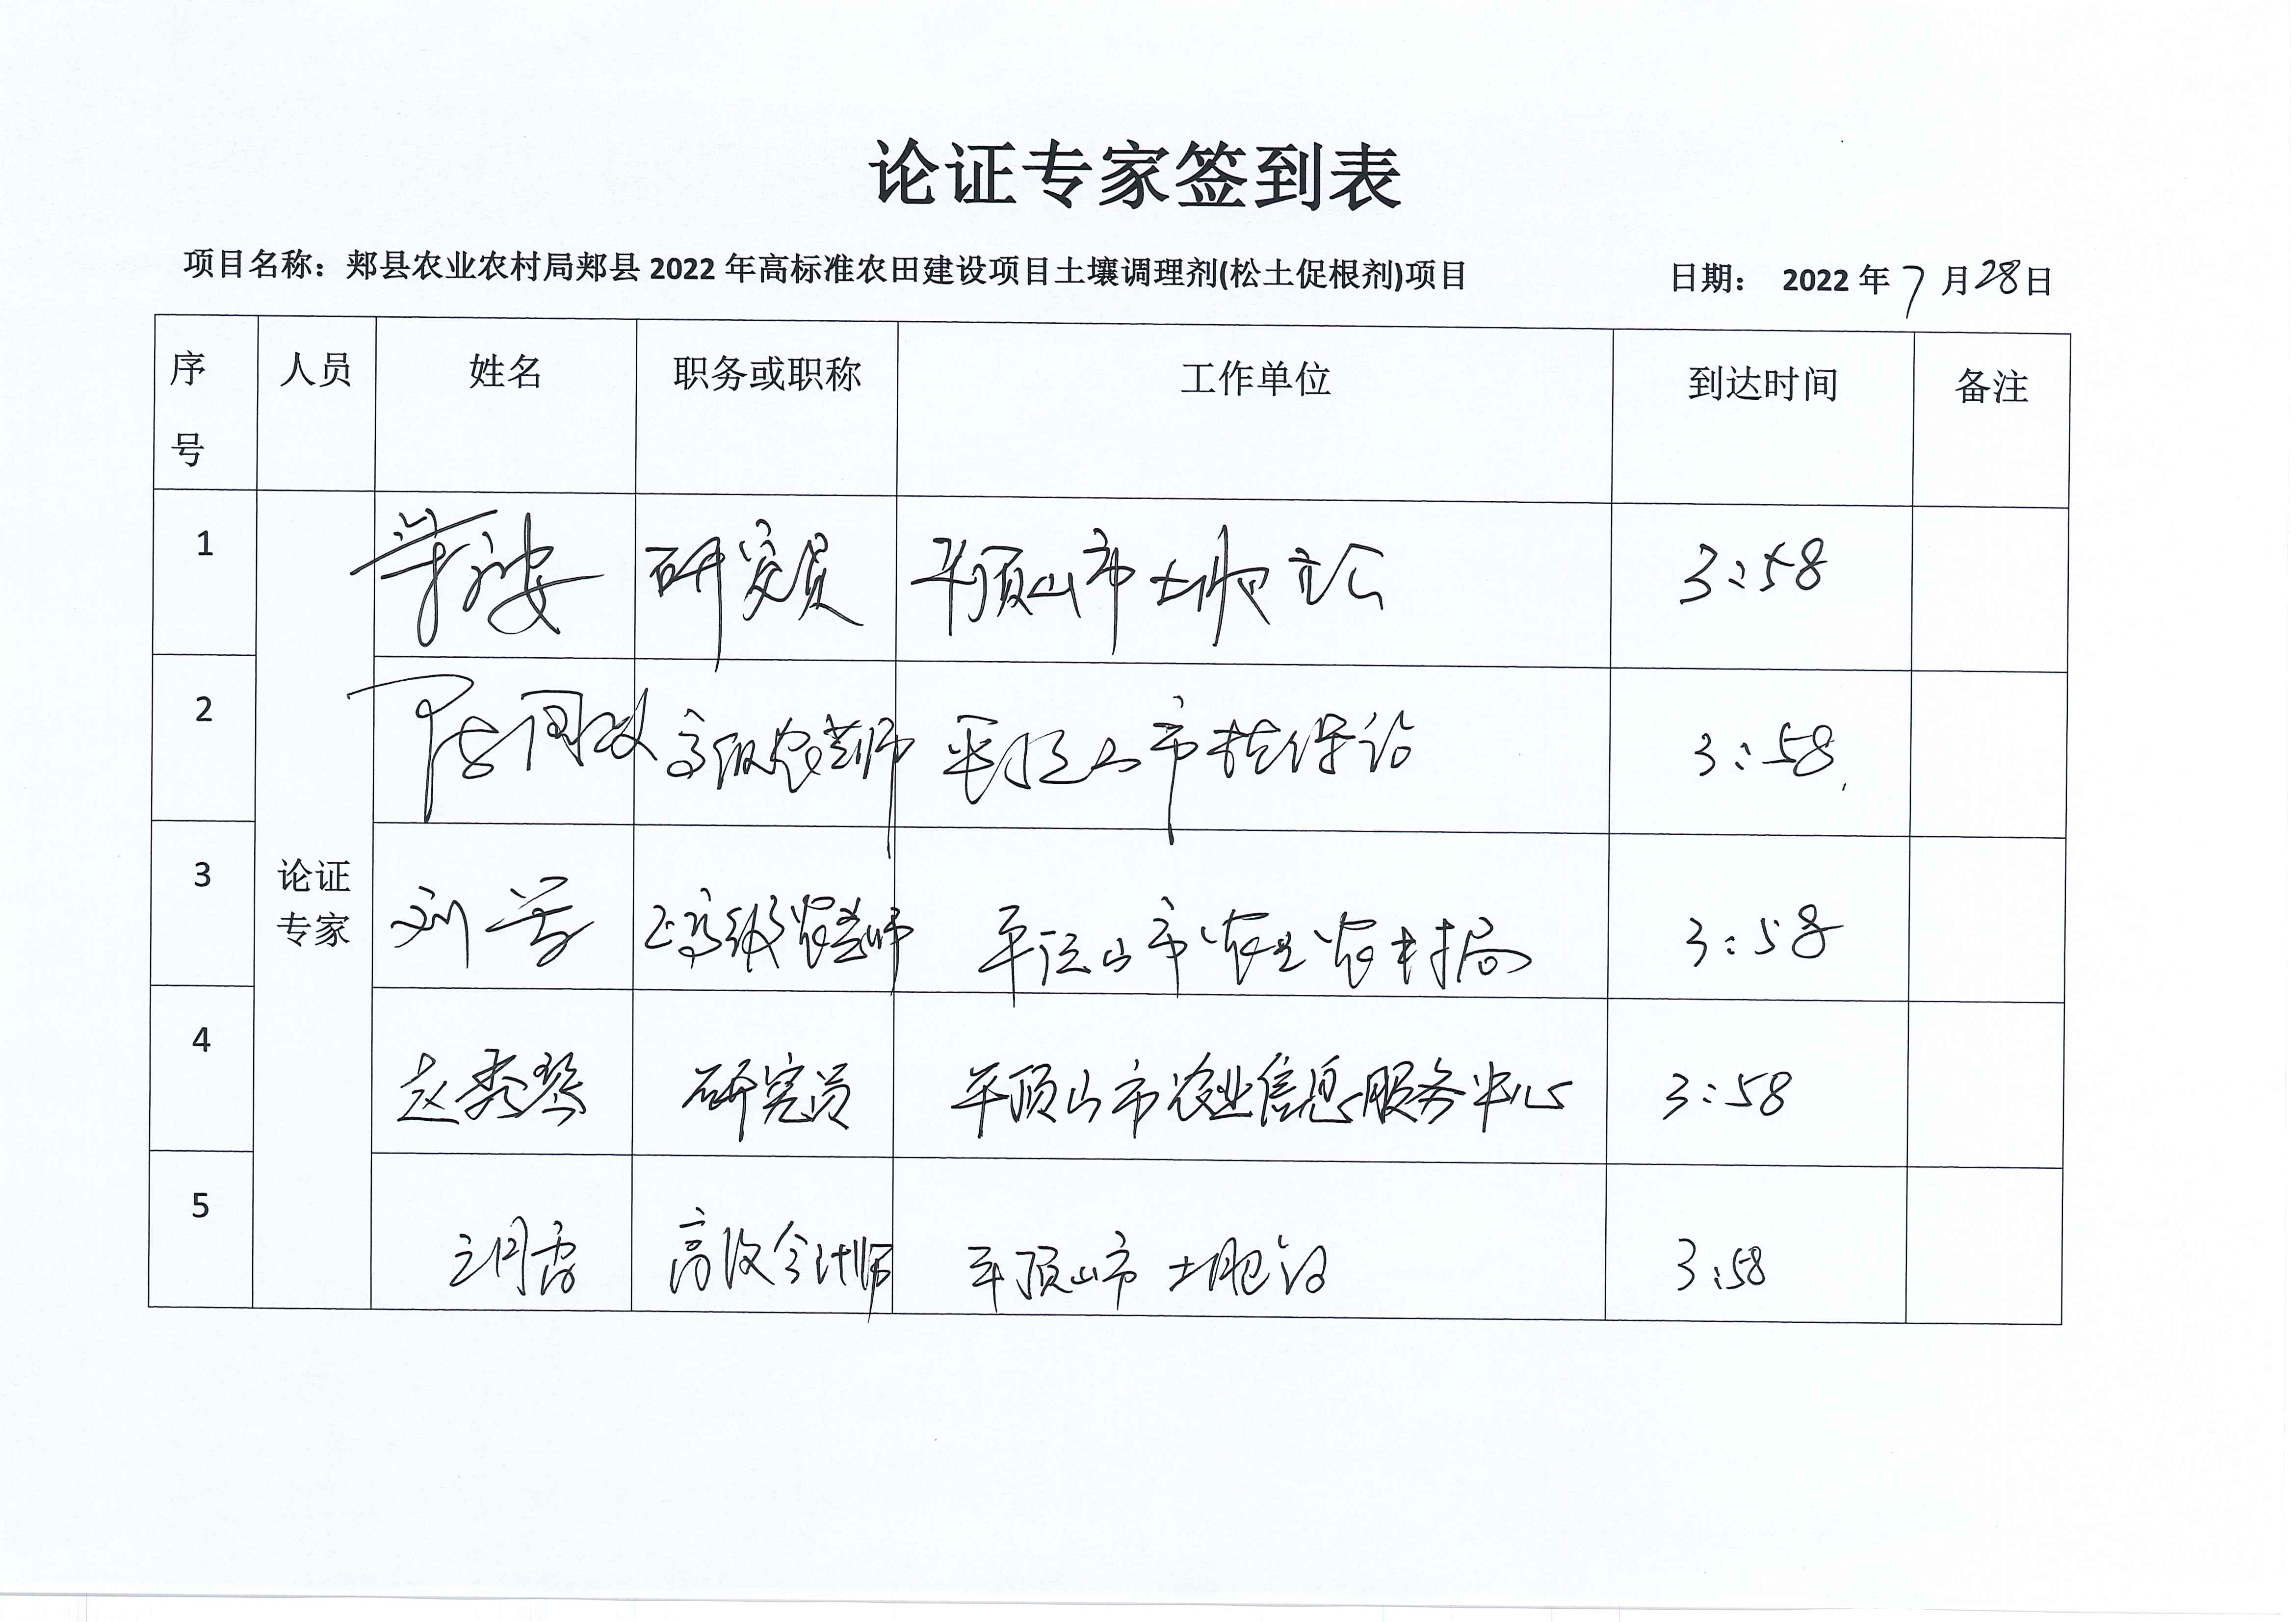 论证专家签到表
项目名称：郏县农业农村局郏县 2022 年高标准农田建设项目土壤调理剂(松土促根剂)项目 日期： 2022 年 7 月 28 日
序号 人员 姓名 职务或职称 工作单位 到达时间 备注
1 研究员 平顶山市土肥站 3:58
2 高级农艺师 平顶山市植保站 3:58
论证专家
3 刘芳 正高级农艺师 平顶山市农业农村局 3:58
4 赵秀琴 研究员 平顶山市农业信息服务中心 3:58
5 高级会计师 平顶山市土肥站 3:58